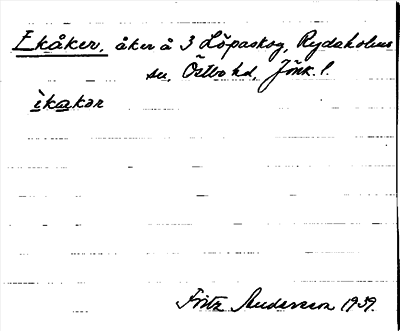 Ekåker, åker å 3 Löpaskog, Rydaholms
sn, Östbo hd, Jönk. l.
ìkakər
Fritz Andersson 1939.